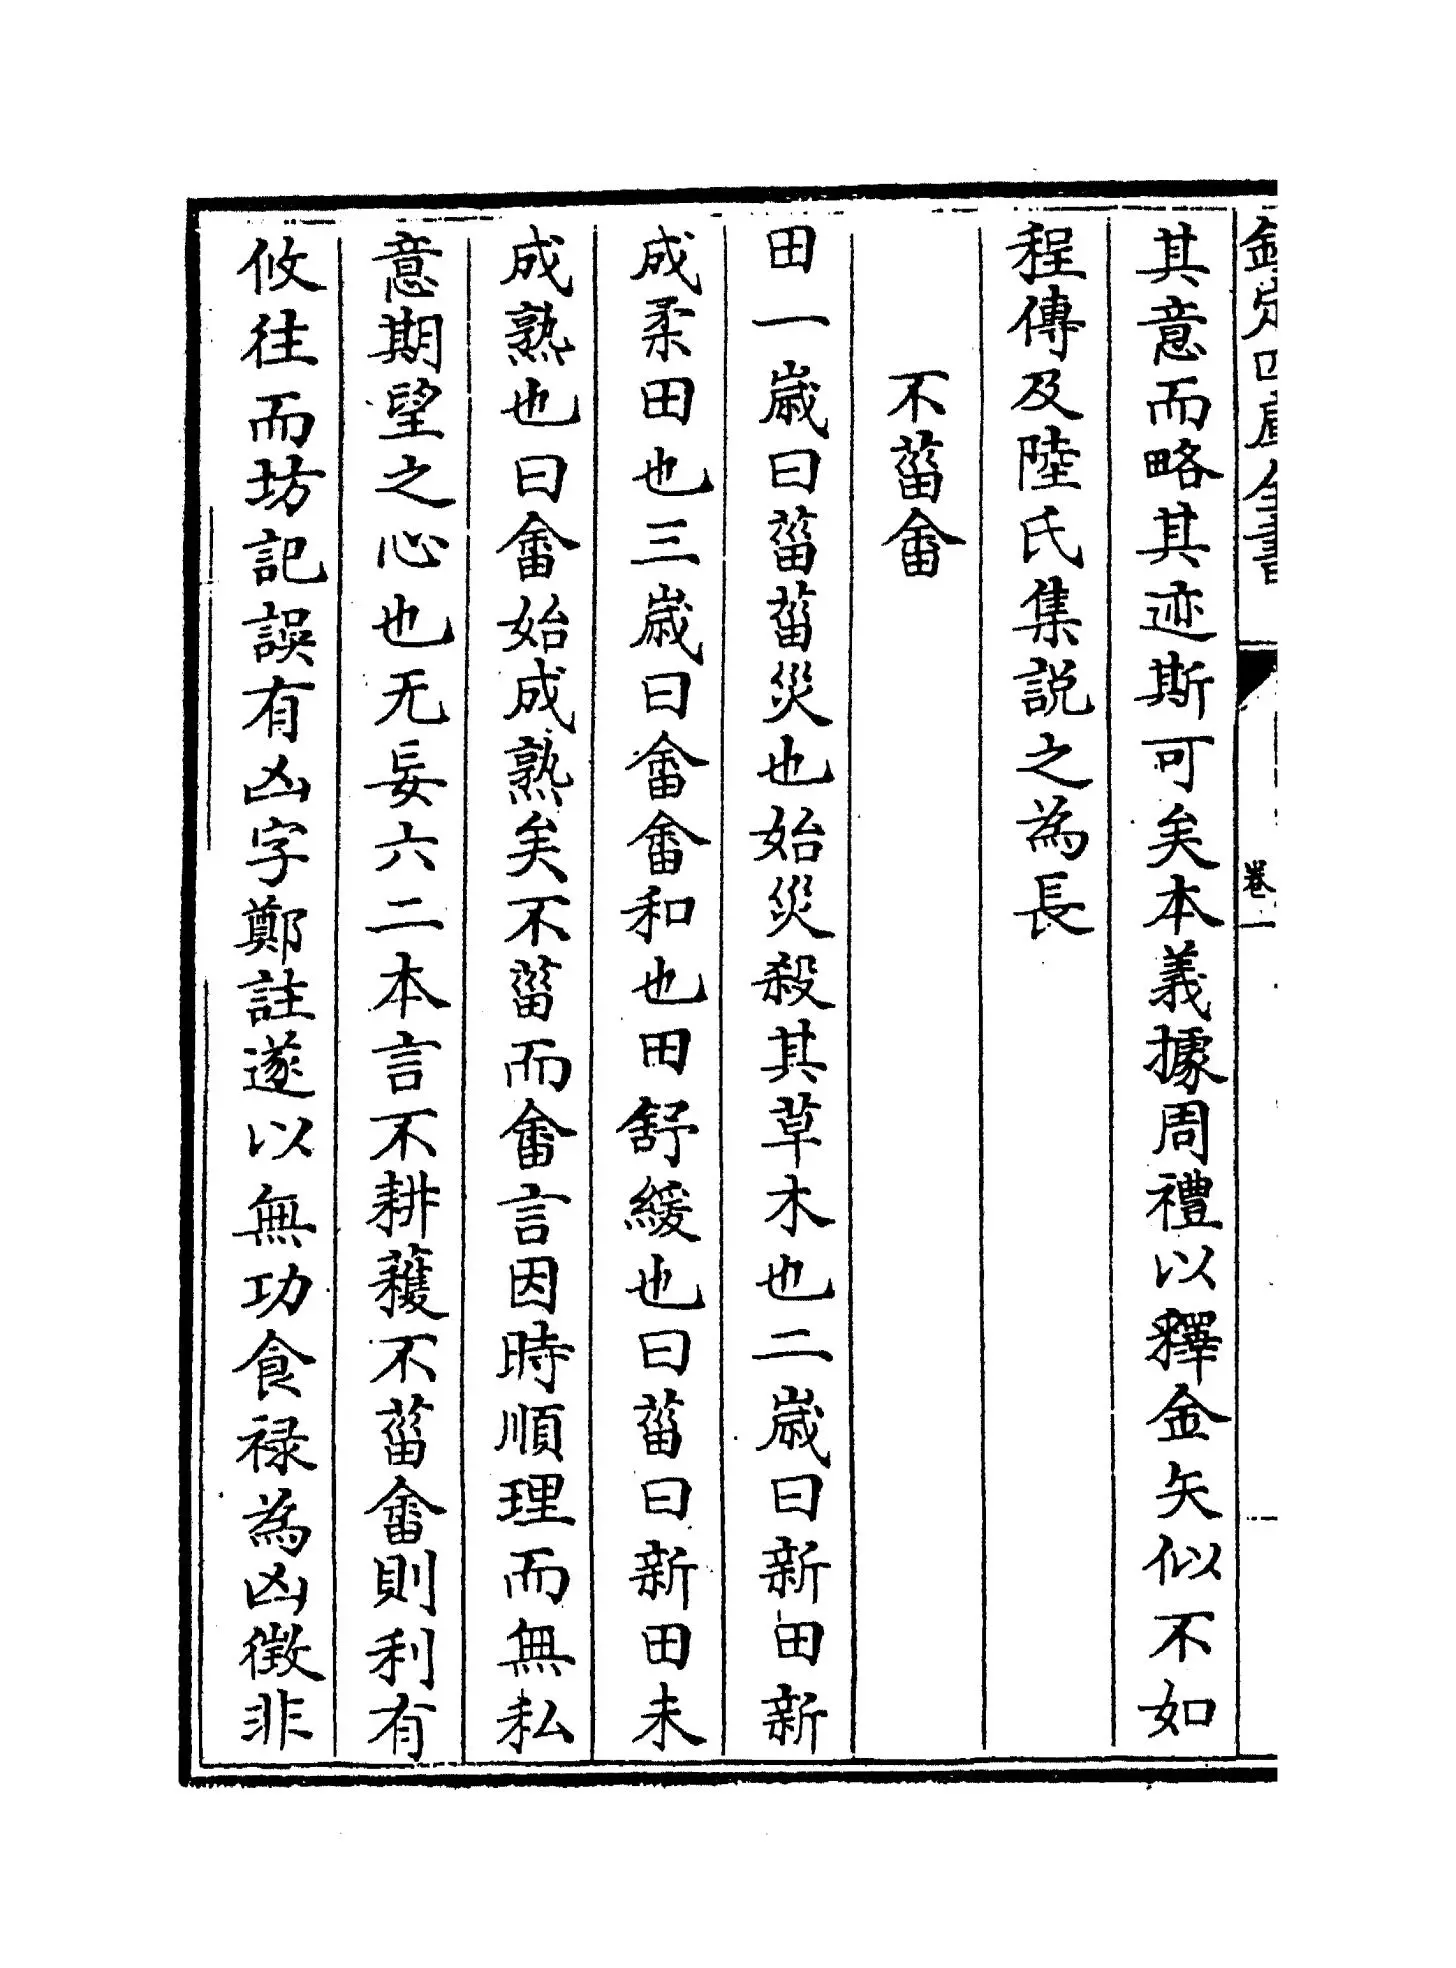 欽定四庫全書
卷一
其意而略其迹斯可矣本義據周禮以釋金矢似不如
程傳及陸氏集説之為長
不菑畬
田一歲曰菑菑災也始災殺其草木也二歲曰新田新
成柔田也三歲曰畬畬和也田舒緩也曰菑曰新田未
成熟也曰畬始成熟矣不菑而畬言因時順理而無私
意期望之心也无妄六二本言不耕穫不菑畬則利有
攸往而坊記誤有凶字鄭註遂以無功食禄為凶徵非